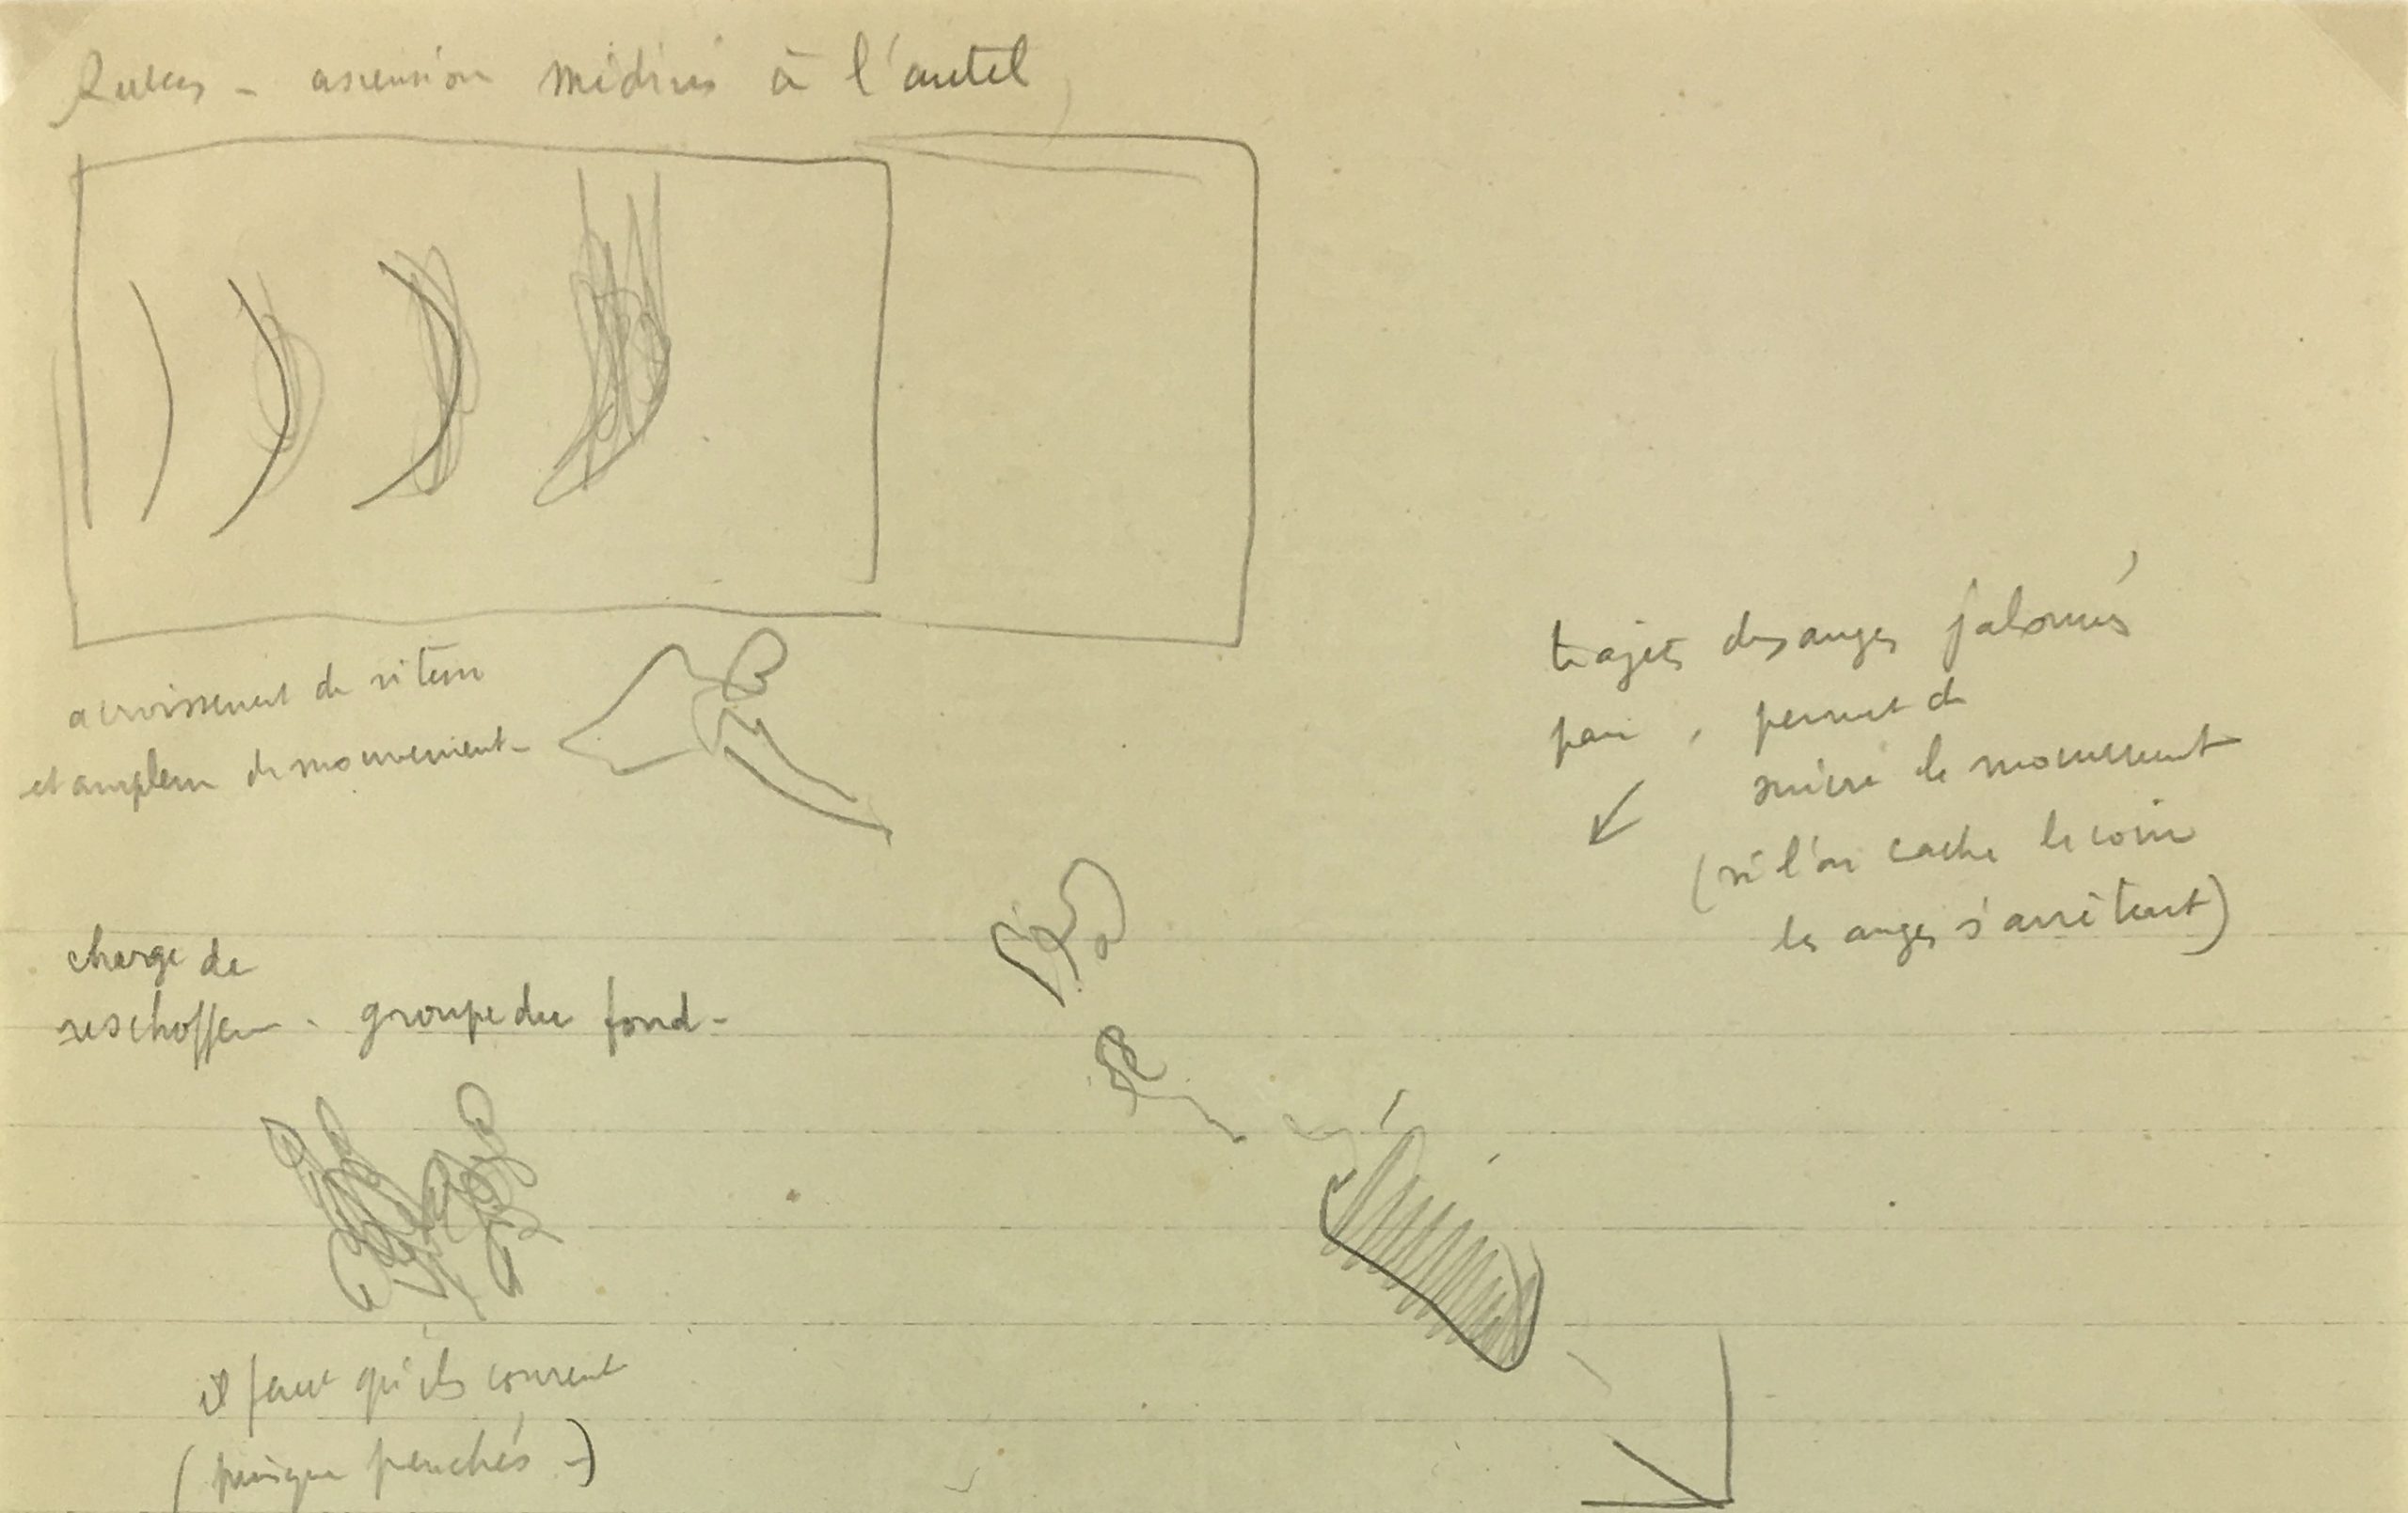 Rubens - ascension Médicis à l'autel
accroissement de vitesse
et ampleur de mouvement -
trajets des anges jalonnés
par , permet de
suivre le mouvement
(si l'on cache le coin
les anges s'arrêtent)
charge de
reschoffen - groupe du fond -
il faut qu'ils courent
(puisque penchés -)